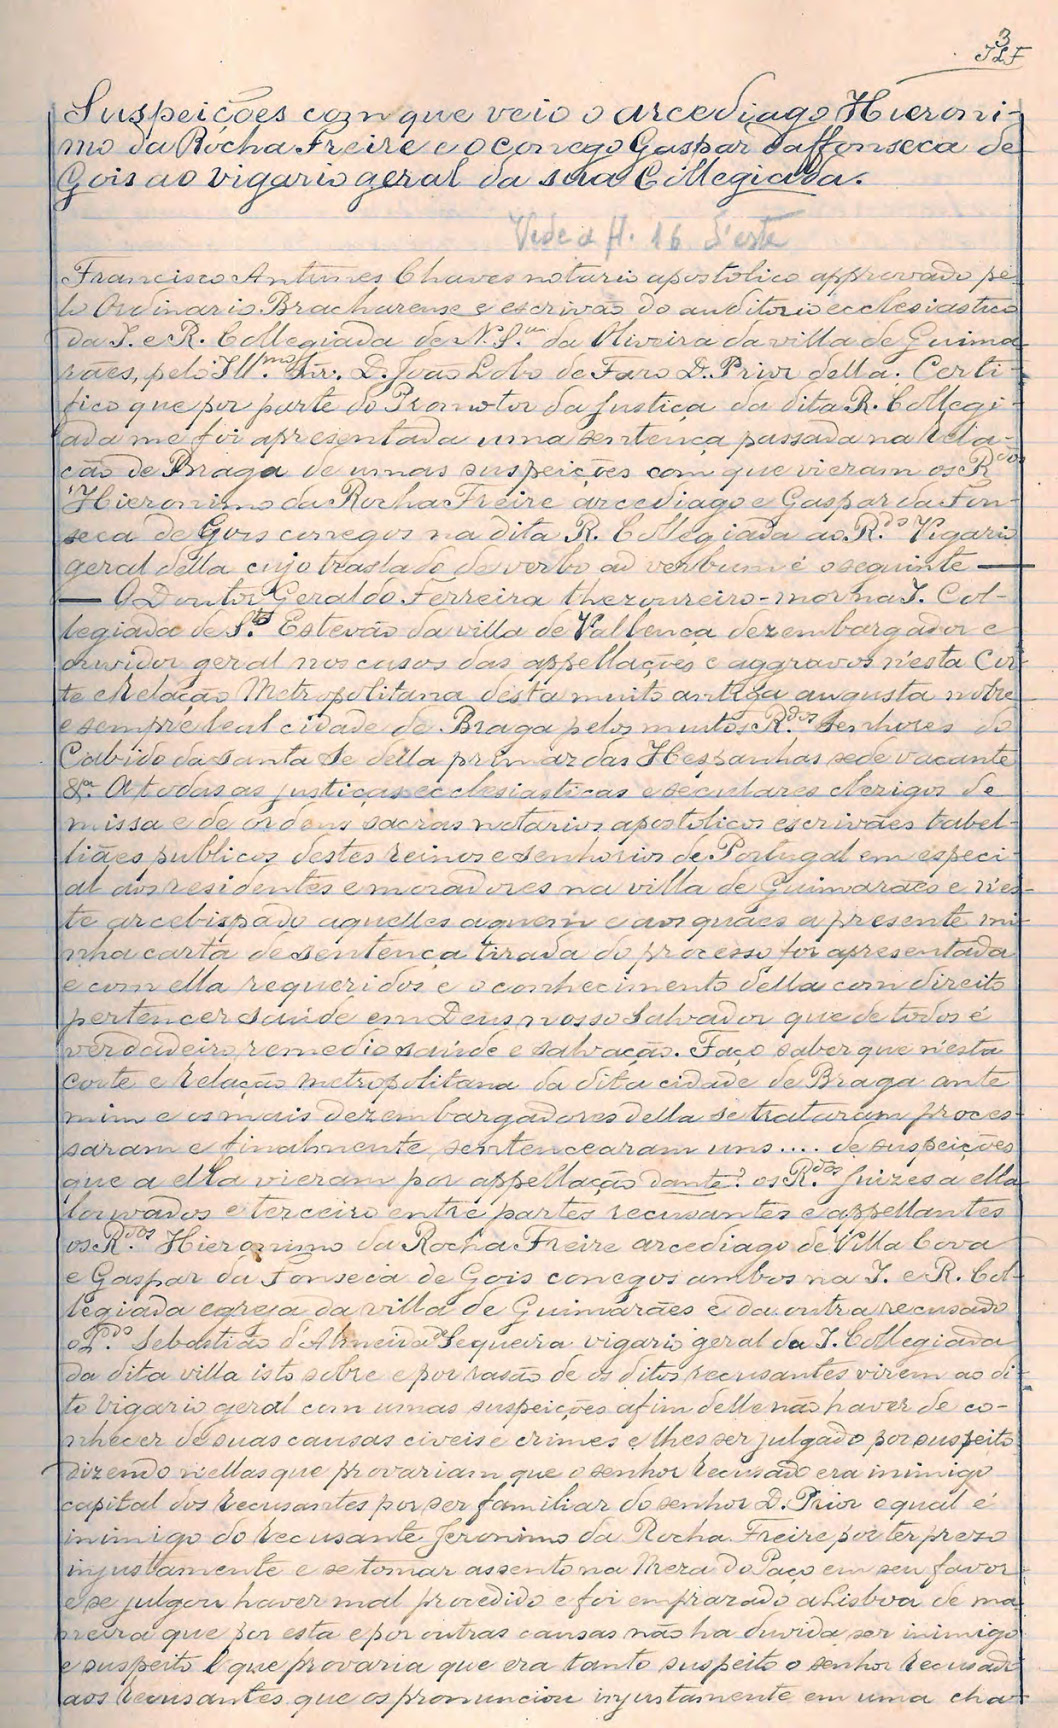 3
JLF
Suspeições com que veio o arcediago Hieroni-
mo da Rocha Freire e o conego Gaspar daffonseca de
Gois ao vigario geral da sua Collegiada.
Vide a fl. 16 d'este
Francisco Antunes Chaves notario apostolico approvado pe-
lo Ordinario Bracharense e escrivão do auditorio ecclesiastico
da I. e R. Collegiada de N. S.ra da Oliveira da villa de Guima
rães, pelo Ill.mo Snr. D. João Lobo de Faro D. Prior della. Certi-
fico que por parte do Promotor da Justiça da dita R. Collegi-
ada me foi apresentada uma sentença passada na Rela-
ção de Braga de umas suspeições com que vieram os R.dos
Hieronimo da Rocha Freire arcediago e Gaspar da Fon-
seca de Gois conegos na dita R. Collegiada ao R.do Vigario
geral della cujo traslado de verbo ad verbum é o seguinte —
— O Doutor Geraldo Ferreira thezoureiro-mor na I. Col-
legiada de S.to Estevão da villa de Vallença dezembargador e
ouvidor geral nos casos das appellações e aggravos n'esta Cor-
te e Relação Metropolitana desta muito antiga augusta nobre
e sempre leal cidade de Braga pelos muitos R.dos Senhores do
Cabido da Santa Se della primaz das Hespanhas sede vacante
&.a A todas as justiças ecclesiasticas e seculares clerigos de
missa e de ordens sacras notarios apostolicos escrivães tabel-
liães publicos destes reinos e senhorios de Portugal em especi-
al aos residentes e moradores na villa de Guimarães e n'es-
te arcebispado aquelles a quem e aos quães a presente mi-
nha carta de sentença tirada do processo for apresentada
e com ella requeridos e o conhecimento della com direito
pertencer saúde em Deus nosso Salvador que de todos é
verdadeiro remedio saúde e salvação. Faço saber que n'esta
corte e Relação Metropolitana da dita cidade de Braga ante
mim e os mais dezembargadores della se trataram proces-
saram e finalmente sentencearam uns .... de suspeições
que a ella vieram por appellação dante? os R.dos Juizes a ella
louvados e terceiro entre partes recusantes e appellantes
os R.dos Hieronimo da Rocha Freire arcediago de Villa Cova
e Gaspar da Fonseca de Gois conegos ambos na I. e R. Col-
legiada egreja da villa de Guimarães e da outra recusado
o L.do Sebastião d'Almeida Sequeira vigario geral da I. Collegiada
da dita villa isto sobre e por rasão de os ditos recusantes virem ao di-
to Vigario geral com umas suspeições afim delle não haver de co-
nhecer de suas causas civeis e crimes e lhes ser julgado por suspeito
dizendo n'ellas que provariam que o senhor Recusado era inimigo
capital dos Recusantes por ser familiar do senhor D. Prior o qual é
inimigo do Recusante Jeronimo da Rocha Freire por ter prezo
injustamente e se tomar assento na Meza do Paço em seu favor
e se julgou haver mal procedido e foi emprazado a Lisboa de ma
neira que por esta e por outras causas não ha duvida ser inimigo
e suspeito E que provaria que era tanto suspeito o senhor Recusado
aos Recusantes que os pronunciou injustamente em uma cha-